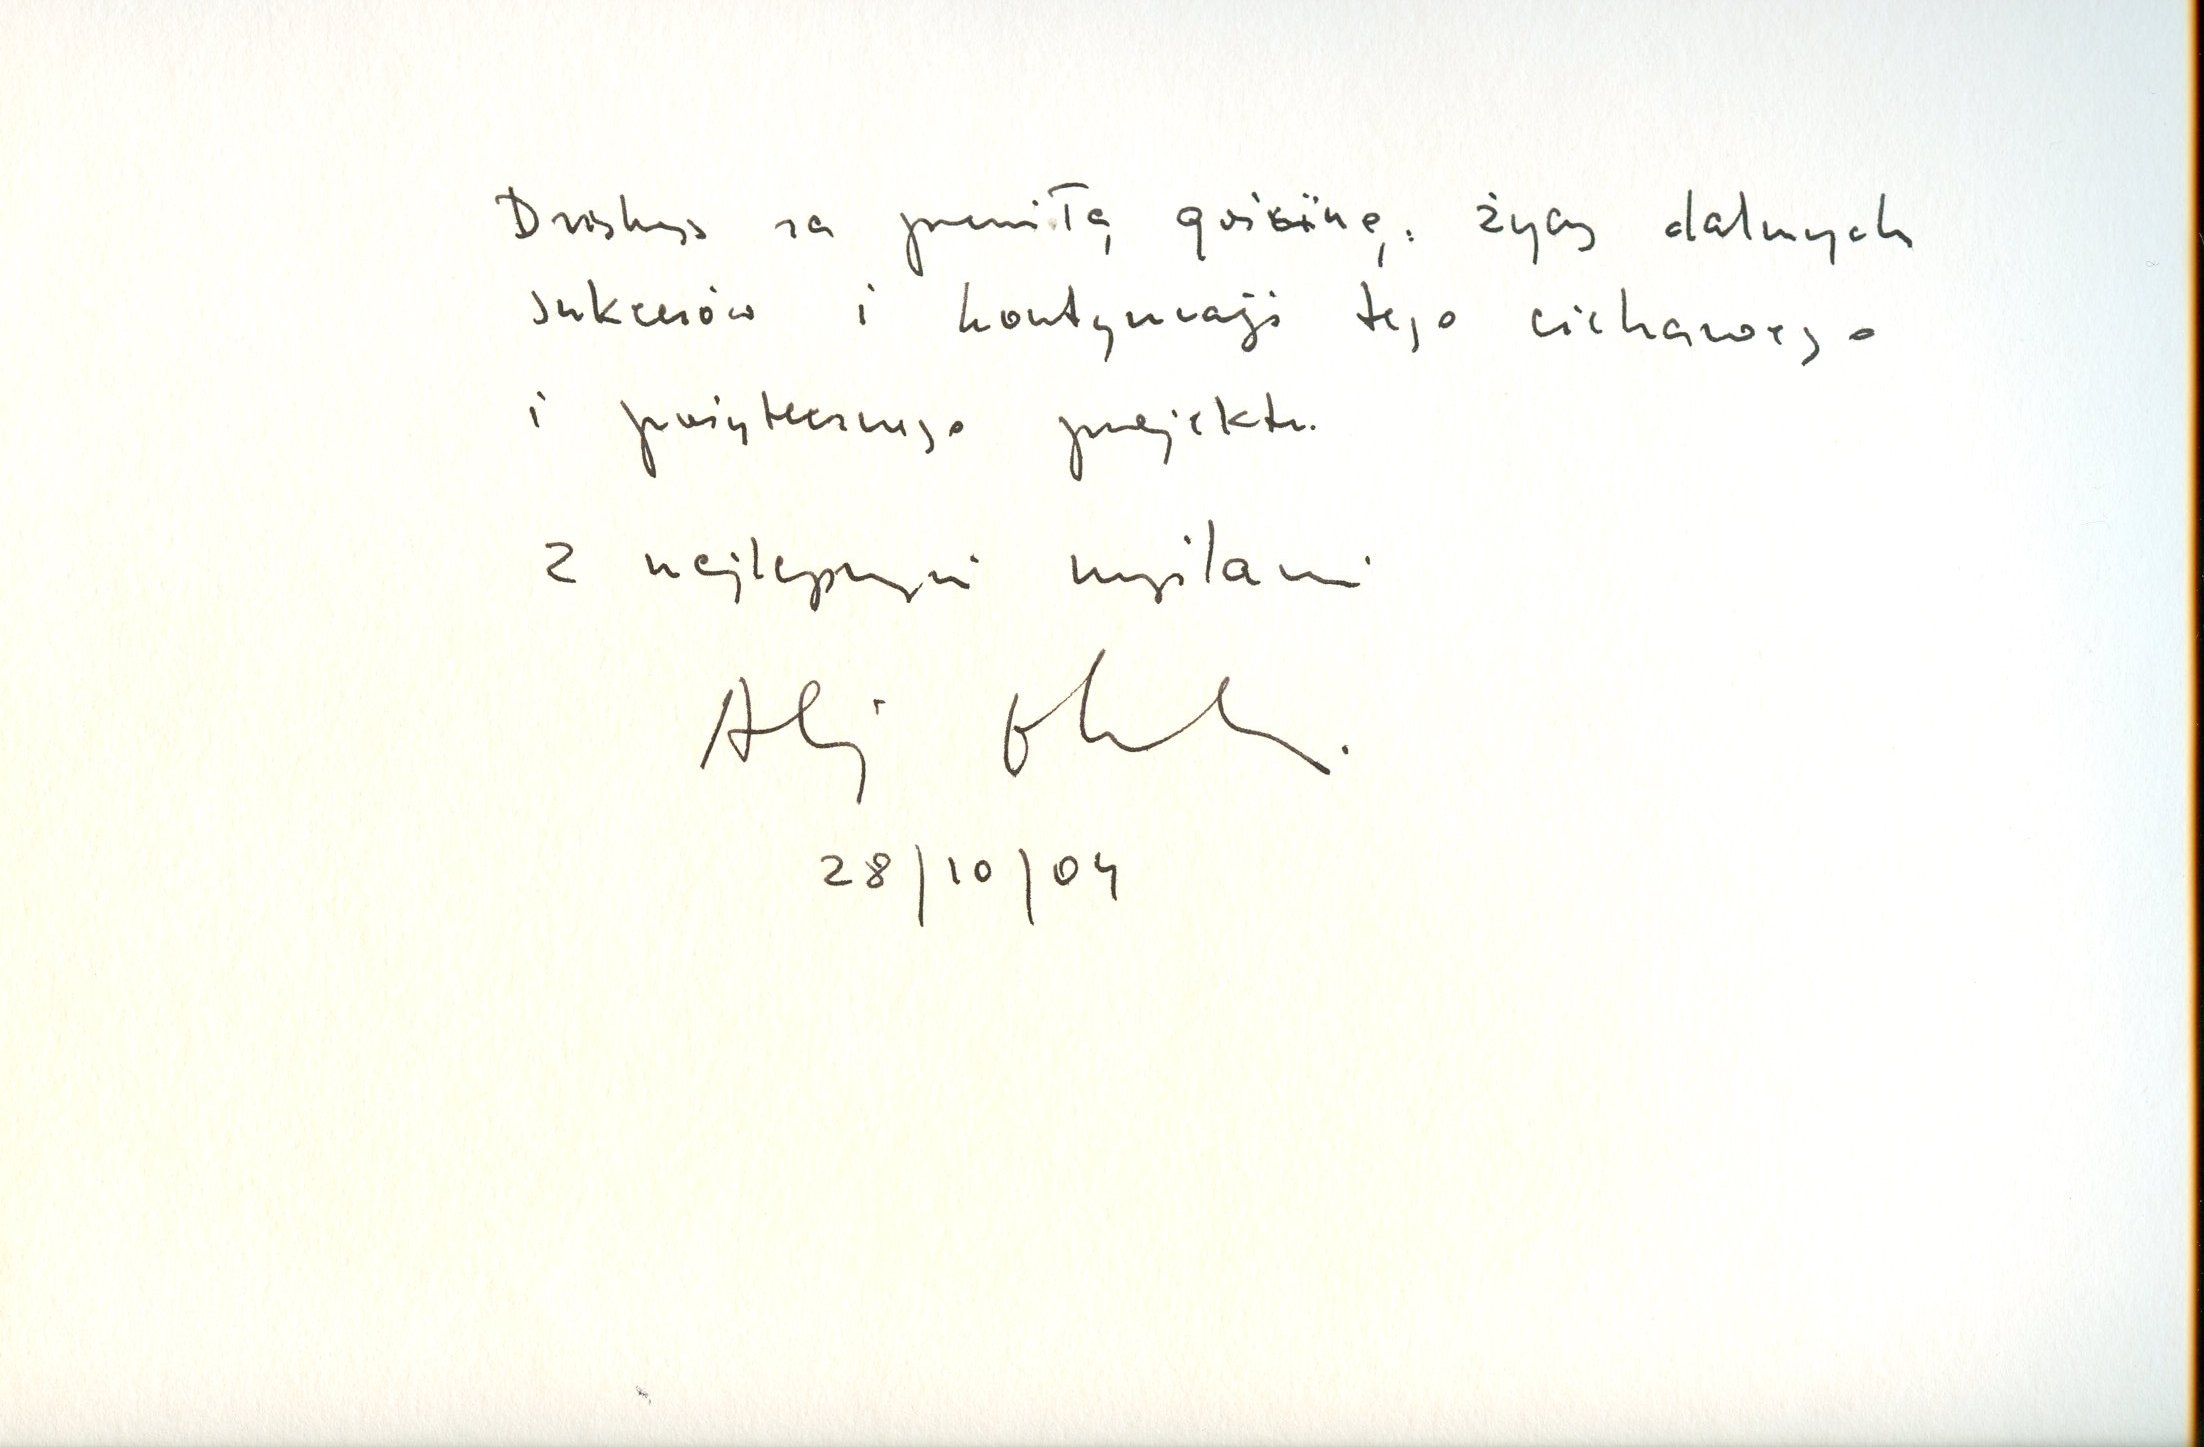 Dziękuję za przemiłą gościnę. życzę dalszych
sukcesów i kontynuacji tego ciekawego
i pożytecznego projektu.
Z najlepszymi myślami
28/10/04